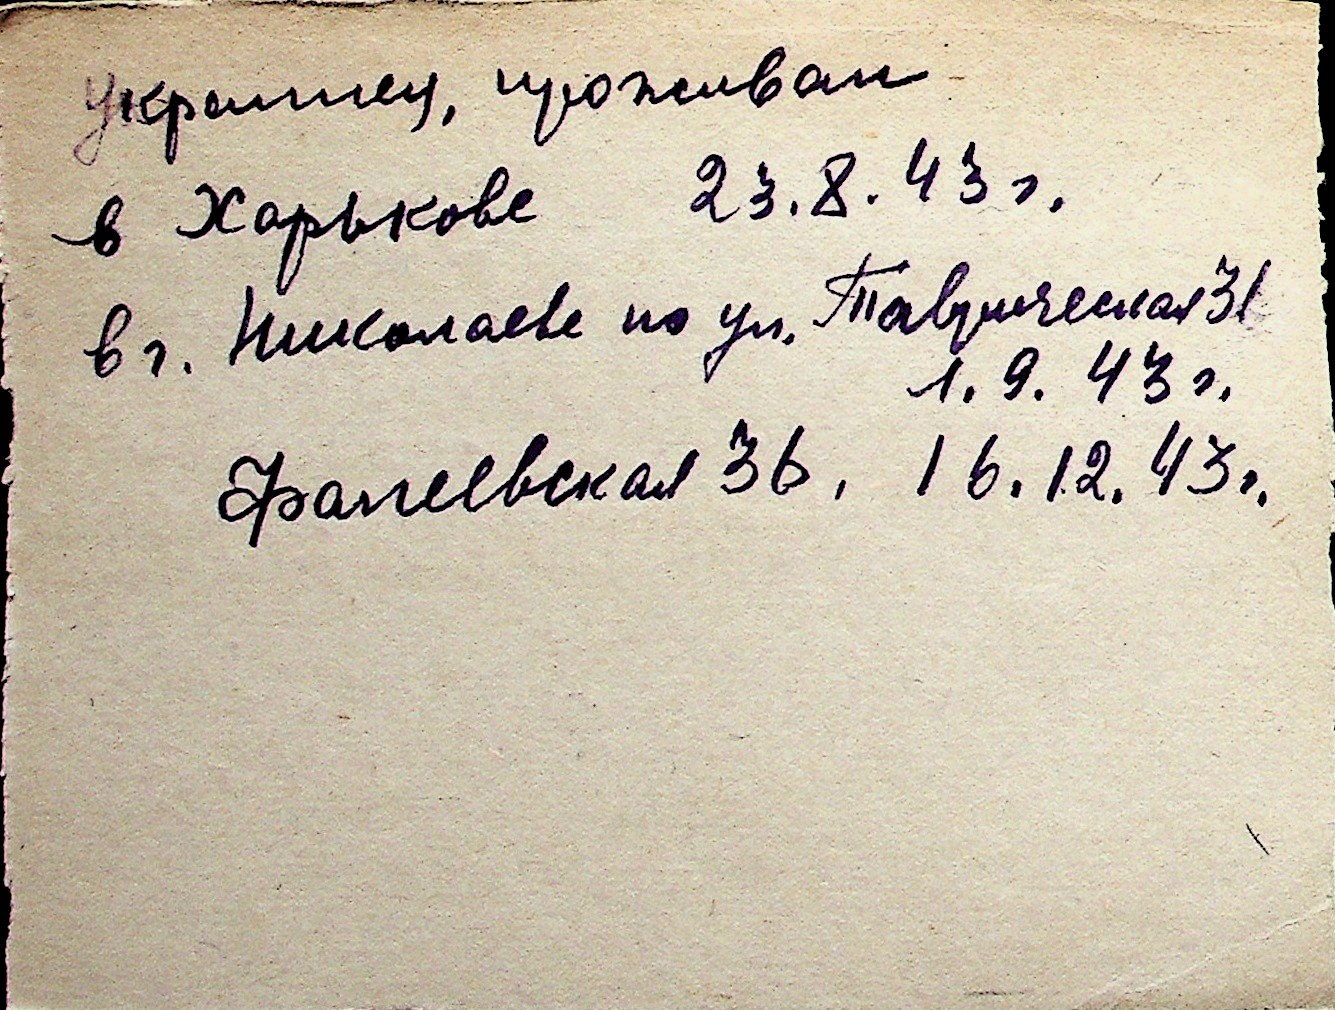 украинец, проживал
в Харькове 23.8.43 г.
в г. Николаеве по ул. Таврическая 31
1.9.43 г.
Фалеевская 36, 16.12.43 г.